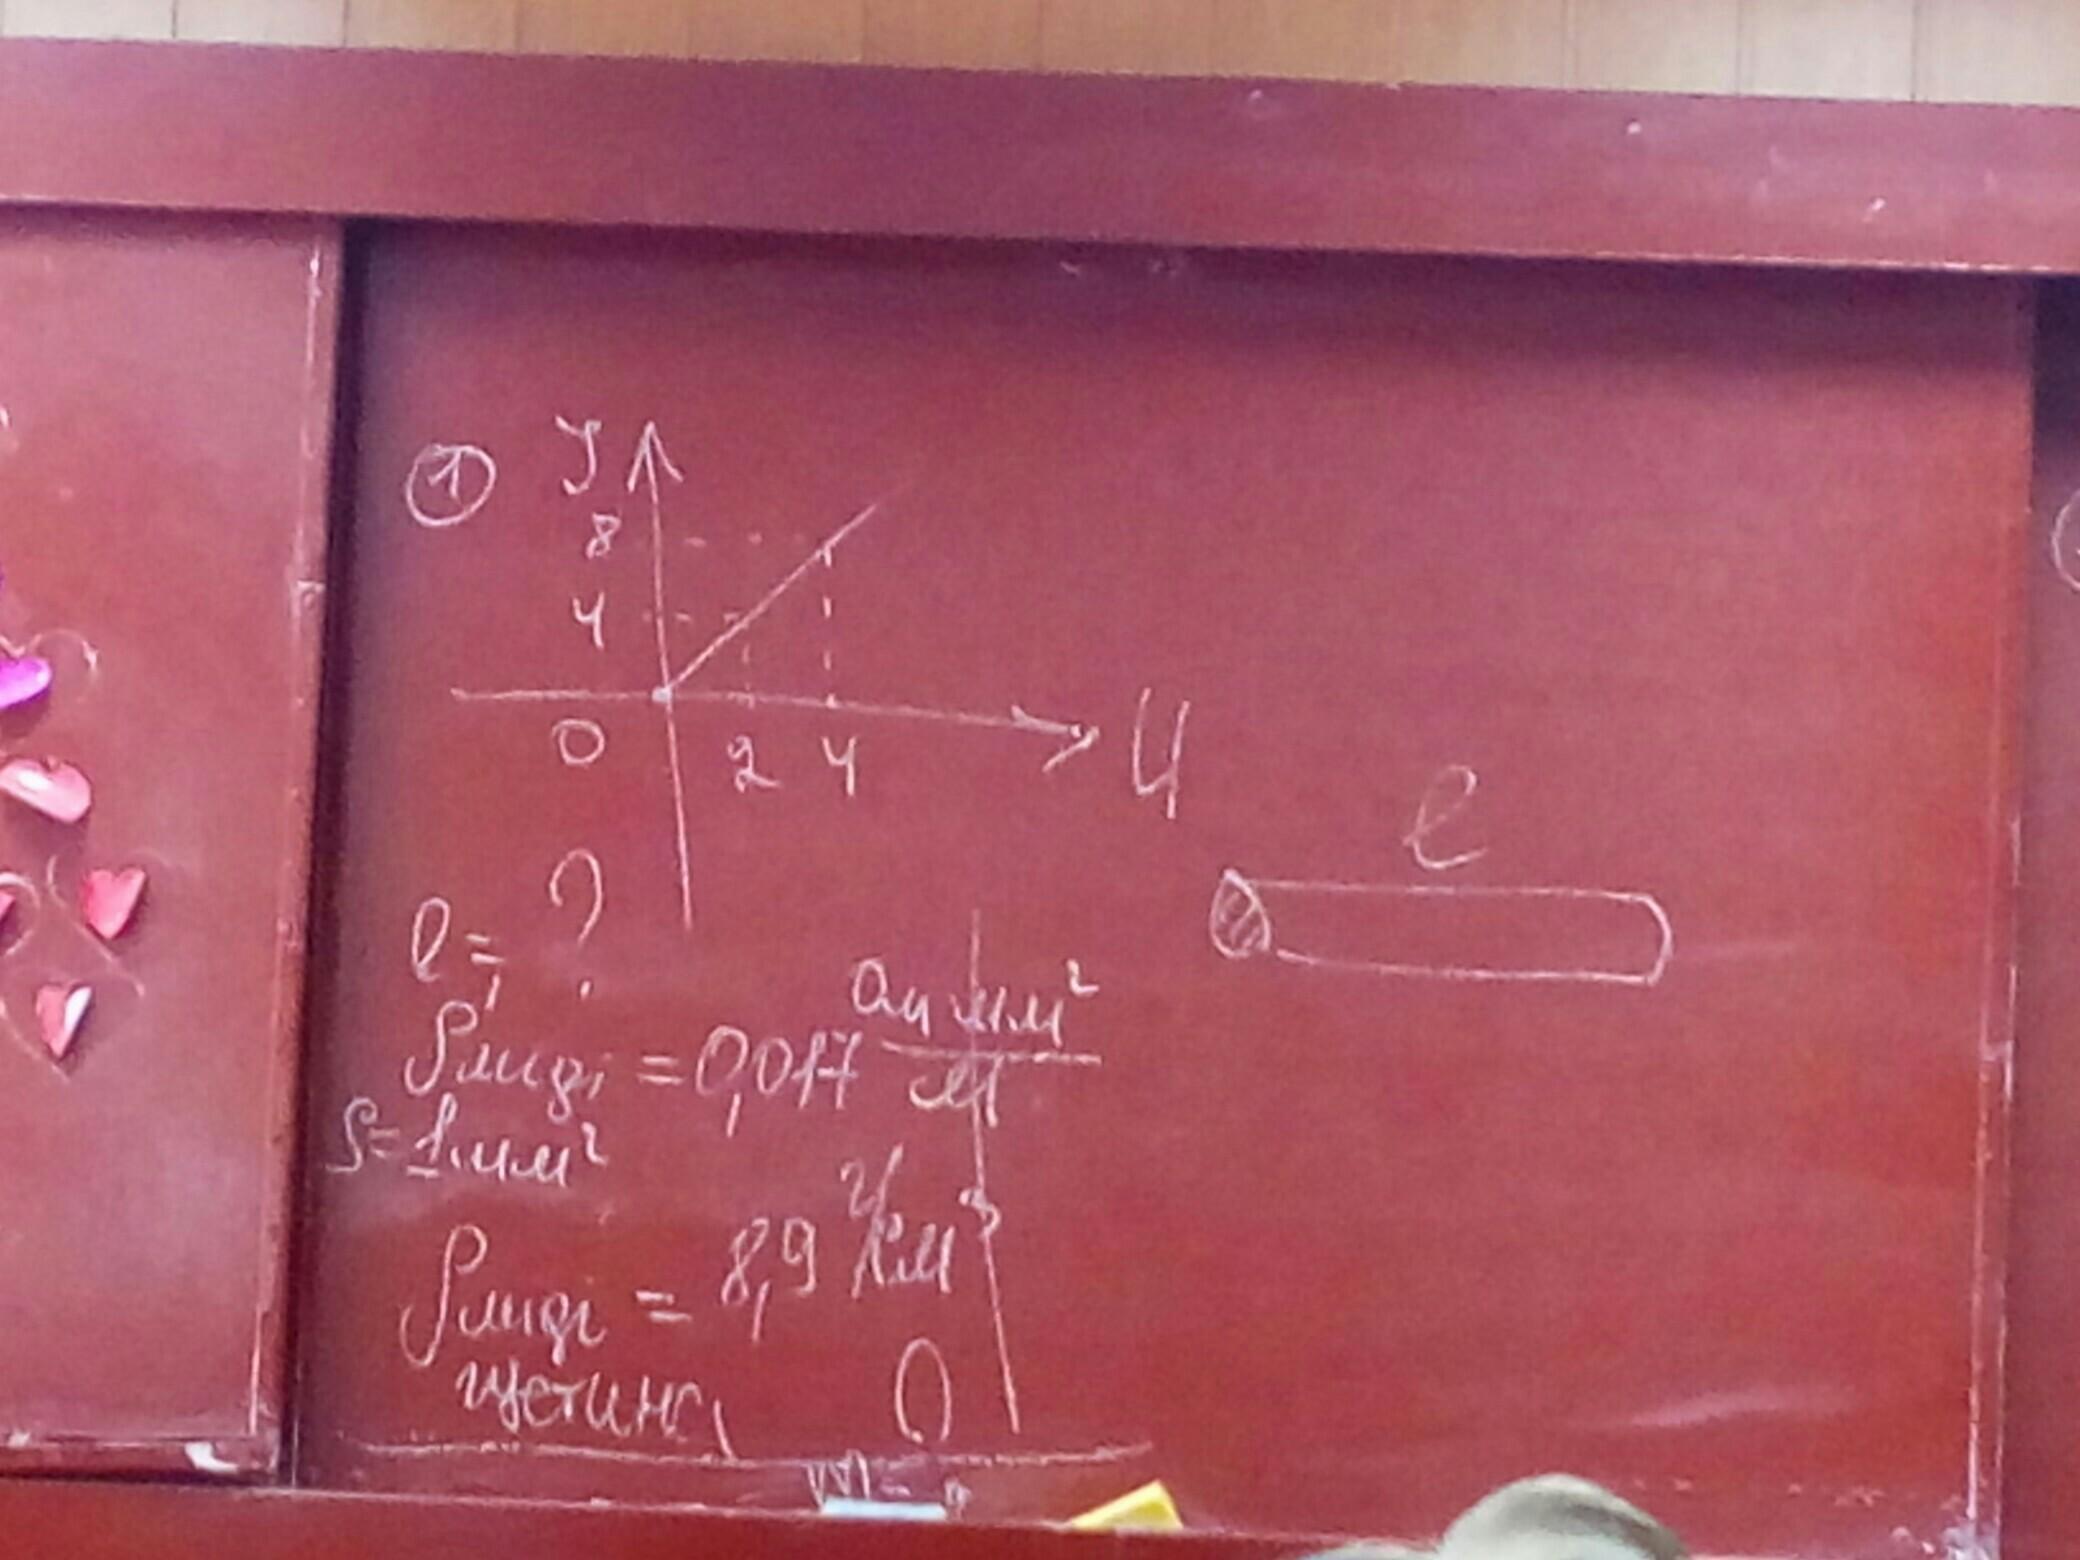 1
I
8
4
0 2 4 U
l
l = ?
ρміді = 0,017 Ом мм² / м
S = 1 мм²
ρміді = 8,9 г/см³
густина
m = ?